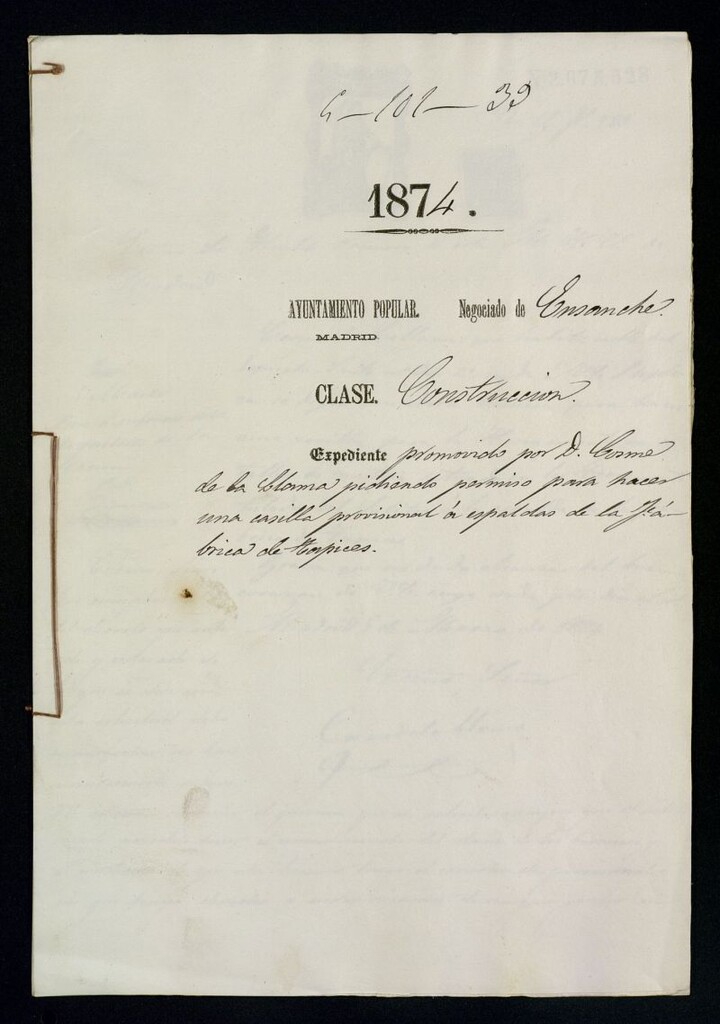 4-101-39
1874.
AYUNTAMIENTO POPULAR. Negociado de Ensanche.
MADRID.
CLASE. Construccion.
Expediente promovido por D. Cosme
de la Llama pidiendo permiso para hacer
una casilla provisional á espaldas de la Fá-
brica de Tapices.